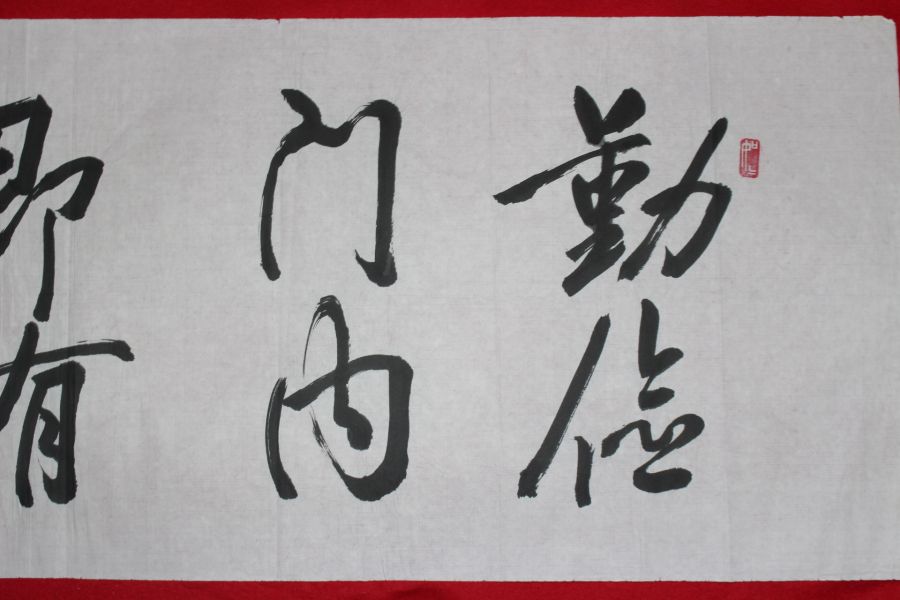 勤俭
门内
即有